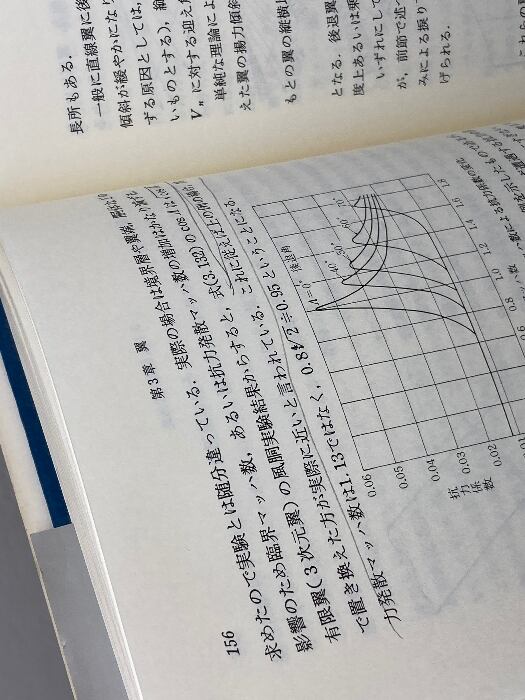 長所もある.
一般に直線翼に後
傾斜が緩やかにな
する原因としては,
いものとする),
に対する迎え
単純な理論によ
えた翼の揚力傾
もとの翼の縦横
となる. 後退翼
度上あるいは乗
いずれにして
が, 前節で述
みによる捩り
げられる.
156
第3章 翼
求めたので実験とは随分違っている. 実際の場合は境界層や翼端,
影響のため臨界マッハ数, あるいは抗力発散マッハ数の増加はかなり
有限翼(3次元翼)の風胴実験結果からすると, 式(3.132)のcosΛは
で置き換えた方が実際に近いと言われている. これに従えば上の例の
力発散マッハ数は1.13ではなく, 0.8∜2≒0.95ということになる.
0.06
0.05
0.04
0.03
0.02
抗力係数
Λ=0°
40°
50°
60°
70°
後退角
0.6
0.8
1.0
1.2
1.4
1.6
1.8